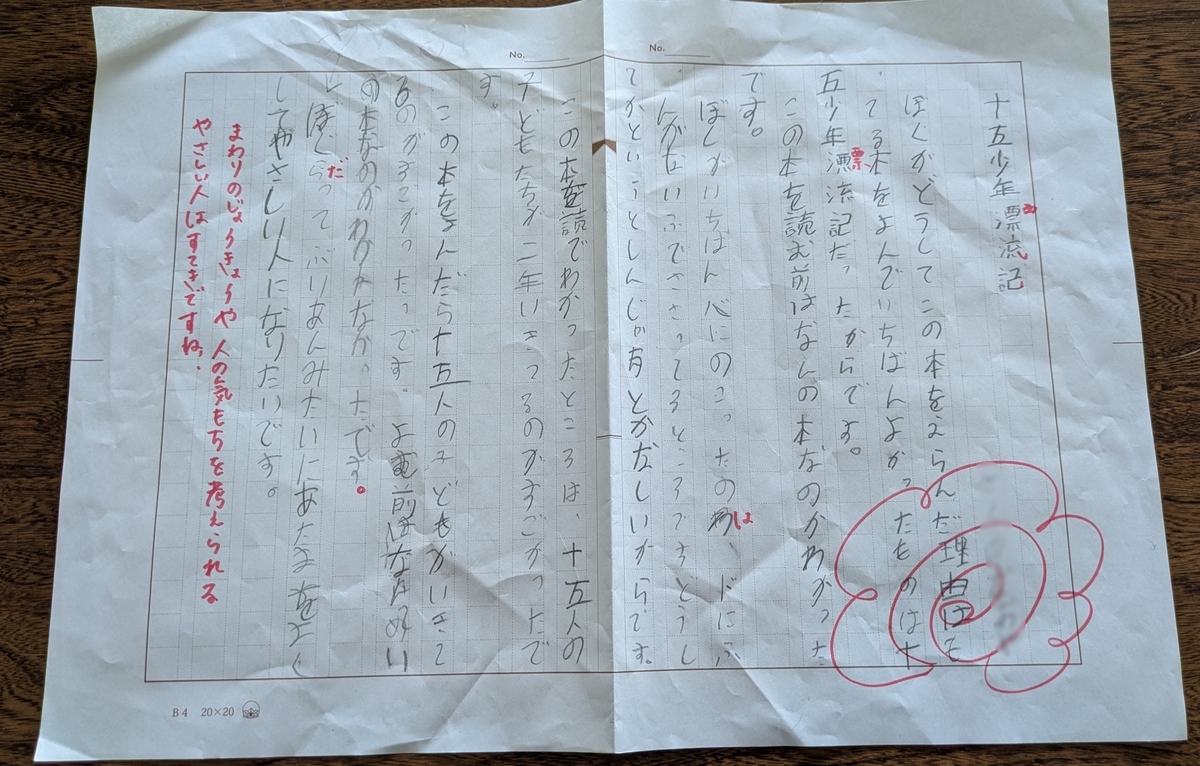 No.
No.
十五少年漂流記
ぼくがどうしてこの本をえらんだ理由はも
てる本をよんでいちばんよかったものは十
五少年漂流記だったからです。
票
この本を読む前はなんの本なのかわかった
です。
ぼくがいちばん心にのこったのわ、ドにふ
は
んがないふでささってるところです
てかというとしんじゃ とかなしいからです。
この本を読でわかったところは、十五人の
子どもたちが二年いきてるのがすごかったで
す。
この本をよんだら十五人の子どもがいきて
るのがすごかったです。よ 前はなな い
の本なのかわかんなかったです。
ぼくらって ふりあんみたいにあたまをよく
だ
してやさしい人になりたいです。
まわりのじょうきょうや 人の気もちを考えられる
やさしい人はすてきですね。
B4 20×20